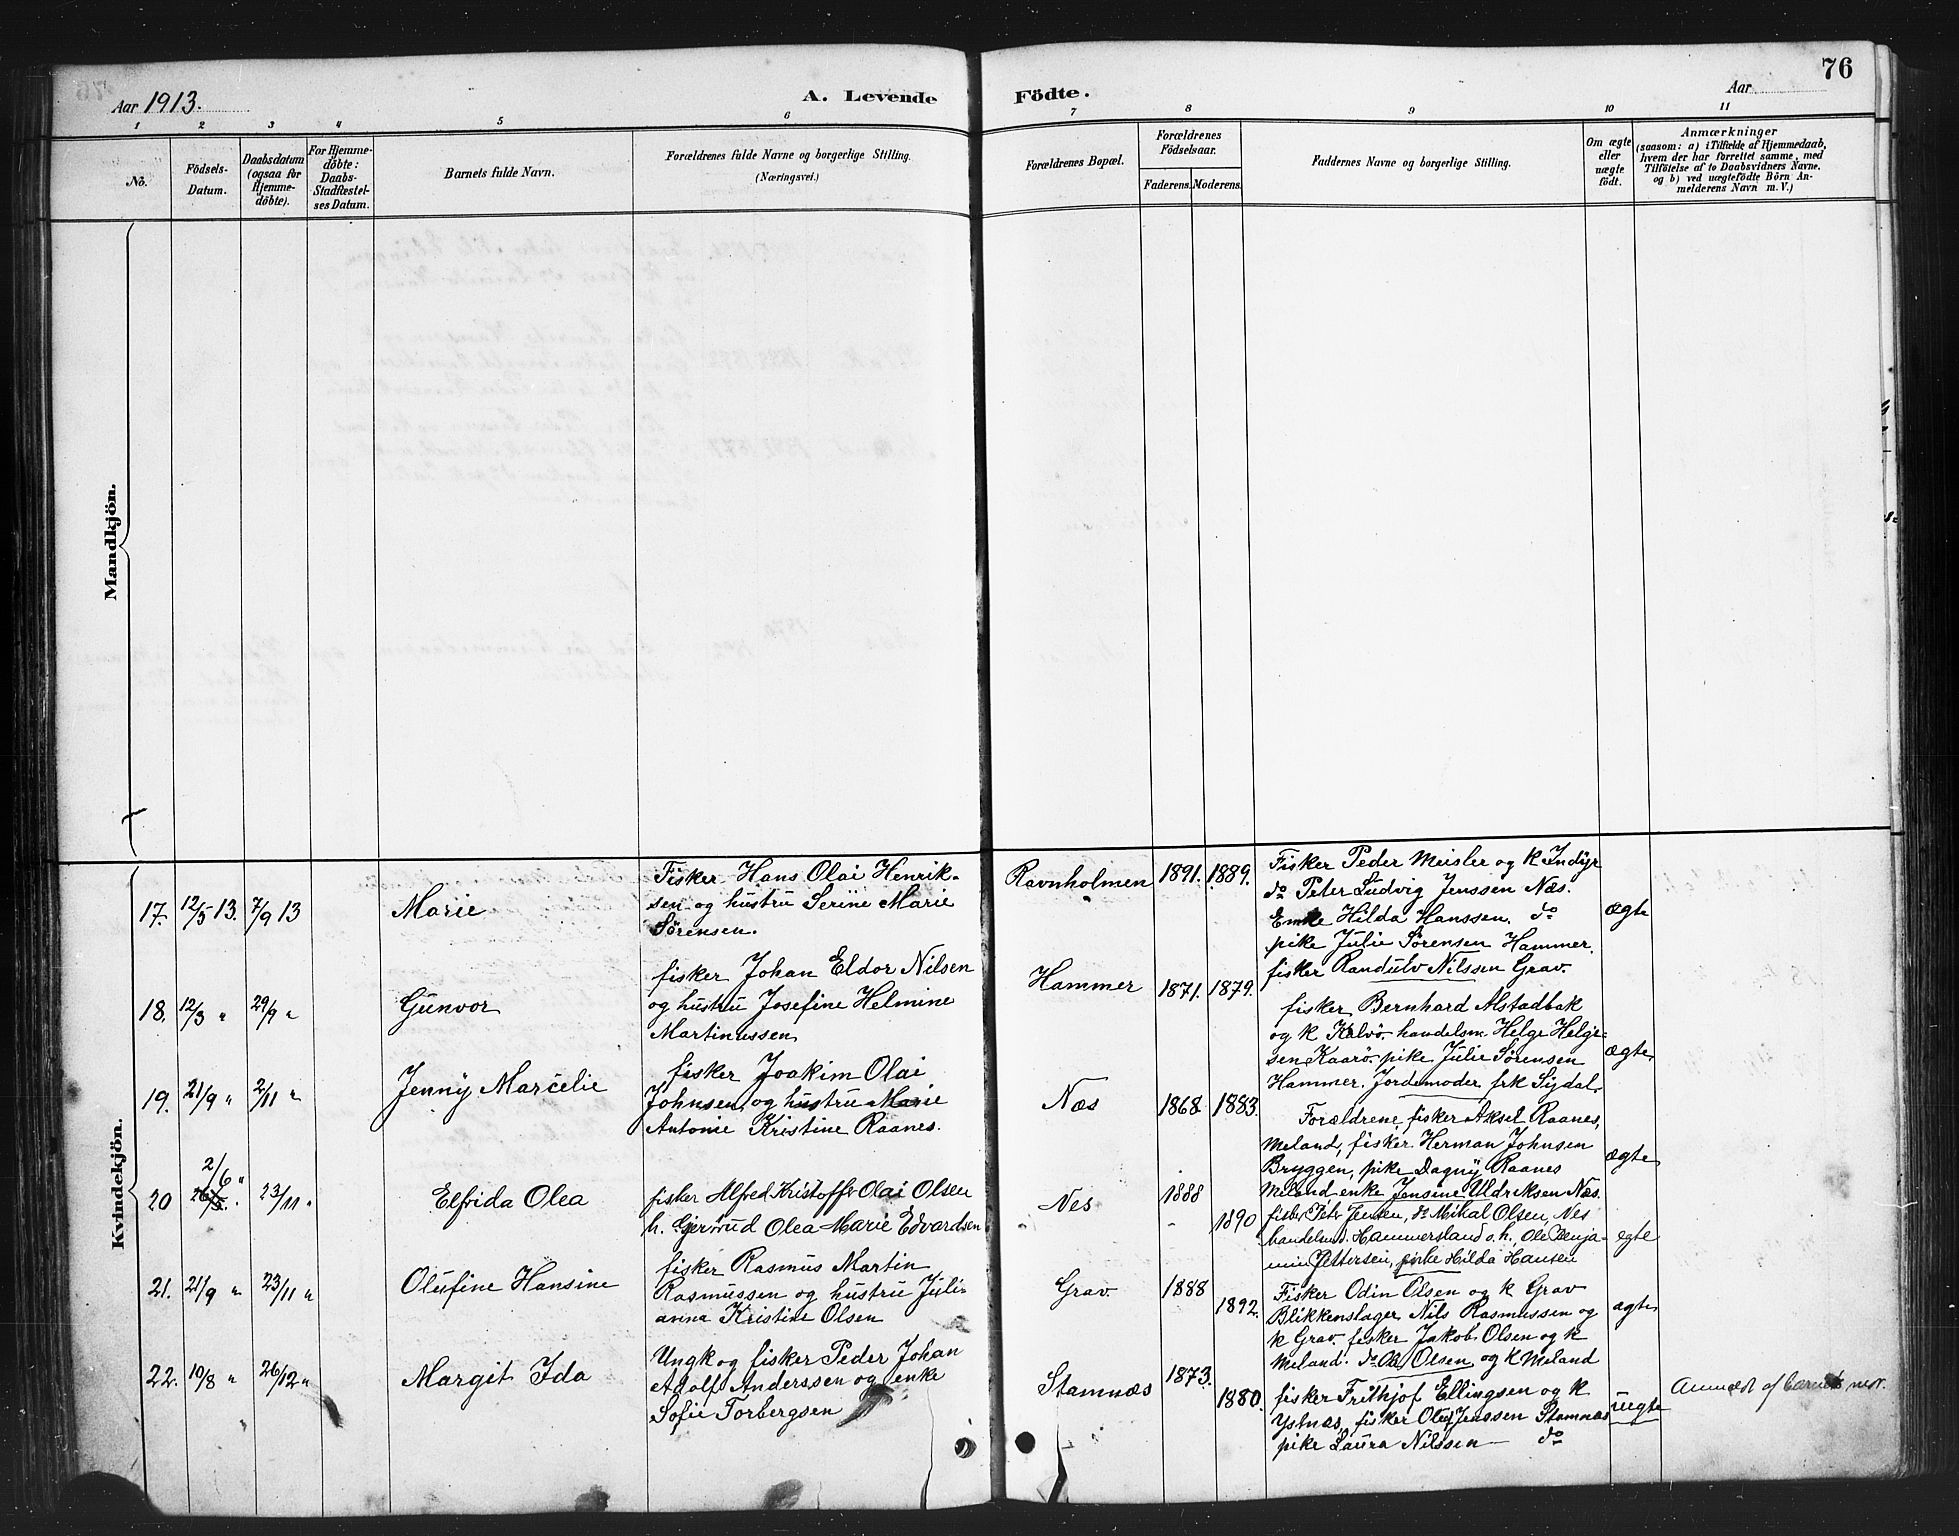 76
Aar 1913.
A. Levende Födte.
Aar
1 2 3 4 5 6 7 8 9 10 11
No.
Födsels-
Datum.
Daabsdatum
(ogsaa for
Hjemme-
döbte).
For Hjemme-
döbte:
Daabs-
Stadfæstel-
ses Datum.
Barnets fulde Navn.
Forældrenes fulde Navne og borgerlige Stilling.
(Næringsvei.)
Forældrenes Bopæl.
Forældrenes
Födselsaar.
Faderens. Moderens.
Faddernes Navne og borgerlige Stilling.
Om ægte
eller
uægte
födt.
Anmærkninger
(saasom: a) i Tilfælde af Hjemmedaab,
hvem der har forrettet samme, med
Tilföielse af to Daabsvidners Navne,
og b) ved uægtefödte Börn An-
melderens Navn m. V.)
Mandkjön.
Kvindekjön.
17. 12/5 13. 7/9 13
Marie
Fisker Hans Olai Henrik-
sen og hustru Serine Marie
Sörensen.
Ravnholmen
1891. 1889.
Fisker Peder Meisler og k Indyr
do Peter Ludvig Jenssen Næs.
Enke Hilda Hanssen. do
pike Julie Sörensen Hammer.
fisker Randulv Nilssen Grav.
ægte
18. 12/3 " 29/9 "
Gunvor
fisker Johan Eldor Nilsen
og hustru Josefine Helmine
Martinussen
Hammer
1871. 1879.
fisker Bernhard Alstadbak
og k Kalvö. handelsm Helge Helge-
sen Kaarö. pike Julie Sörensen
Hammer. Jordemoder frk Sydal.
ægte
19. 21/9 " 2/11 "
Jenny Marcelie
fisker Joakim Olai
Johnsen og hustru Marie
Antonie Kristine Raanes.
Næs
1868 1883.
Forældrene, fisker Aksel Raanes,
Meland, fisker Herman Johnsen
Bryggen, pike Dagny Raanes
Meland enke Jensine Uldriksen Næs.
ægte
20 2/6 " 26/5. " 23/11 "
Elfrida Olea
fisker Alfred Kristoffer Olai Olsen
h. Gjertrud Olea Marie Edvardsen
Nes
1888
1890
fisker Peter Jensen, do Mikal Olsen, Nes
handelsmd. Hammersland o. h., Ole Benja-
min Pettersen, pike Hilda Hansen
egte
21. 21/9 " 23/11 "
Olufine Hansine
fisker Rasmus Martin
Rasmussen og hustru Juli-
anna Kristine Olsen
Grav
1888
1892.
Fisker Odin Olsen og k Grav
Blikkenslager Nils Rasmussen og
k Grav. fisker Jakob Olsen og k
Meland. do Olsen og k Meland
ægte
22. 10/8 " 26/12 "
Margit Ida
Ungk og fisker Peder Johan
Adolf Anderssen og enke
Sofie Torbergsen
Stamnæs
1873.
1880.
fisker Frithjof Ellingsen og k
Ystnæs, fisker Oluf Jenssen Stamnæs
pike Laura Nilssen — do
uegte
Anmeldt af barnets mor.